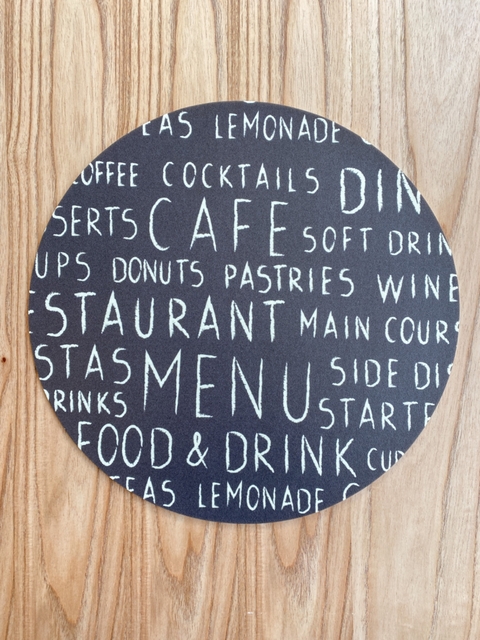 EAS LEMONADE C
COFFEE COCKTAILS DIN
SERTS CAFE SOFT DRIN
UPS DONUTS PASTRIES WINE
ESTAURANT MAIN COURS
STAS MENU SIDE DIS
DRINKS STARTE
FOOD & DRINK CUP
TEAS LEMONADE C